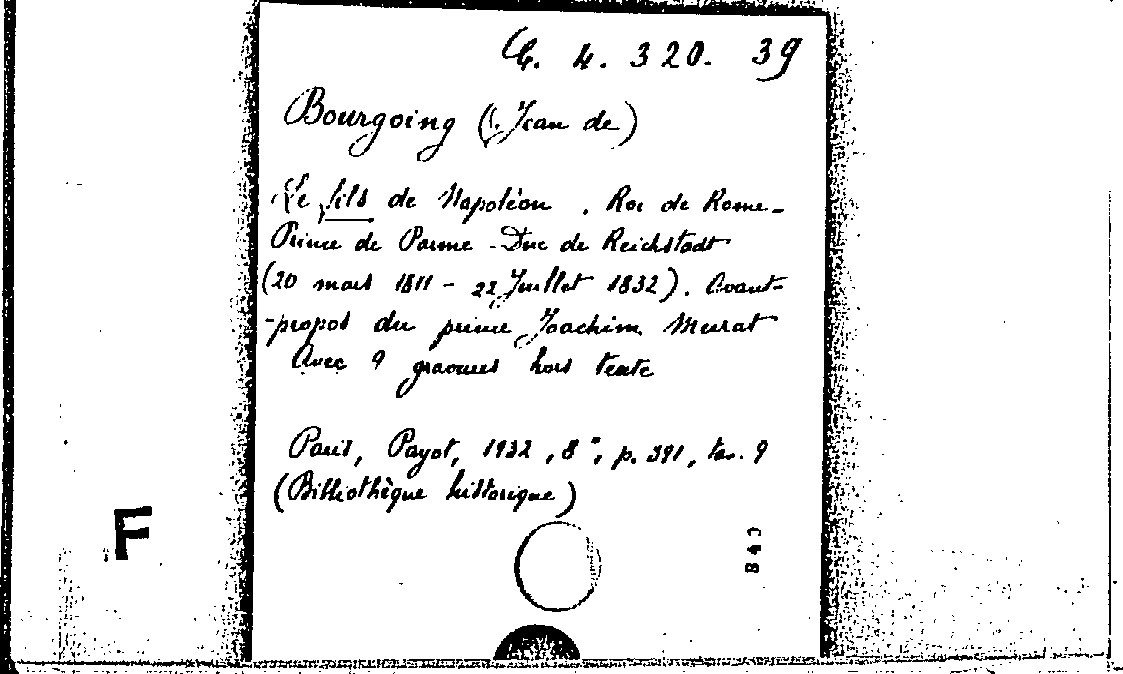 C. 4. 320. 39
Bourgoing (Jean de)
Le fils de Napoléon. Roi de Rome-
Prince de Parme - Duc de Reichstadt
(20 mars 1811 - 22 Juillet 1832). Avant-
-propos du prince Joachim Murat
Avec 9 gravures hors texte
Paris, Payot, 1932, 8°, p. 391, tav. 9
(Bibliothèque historique)
F